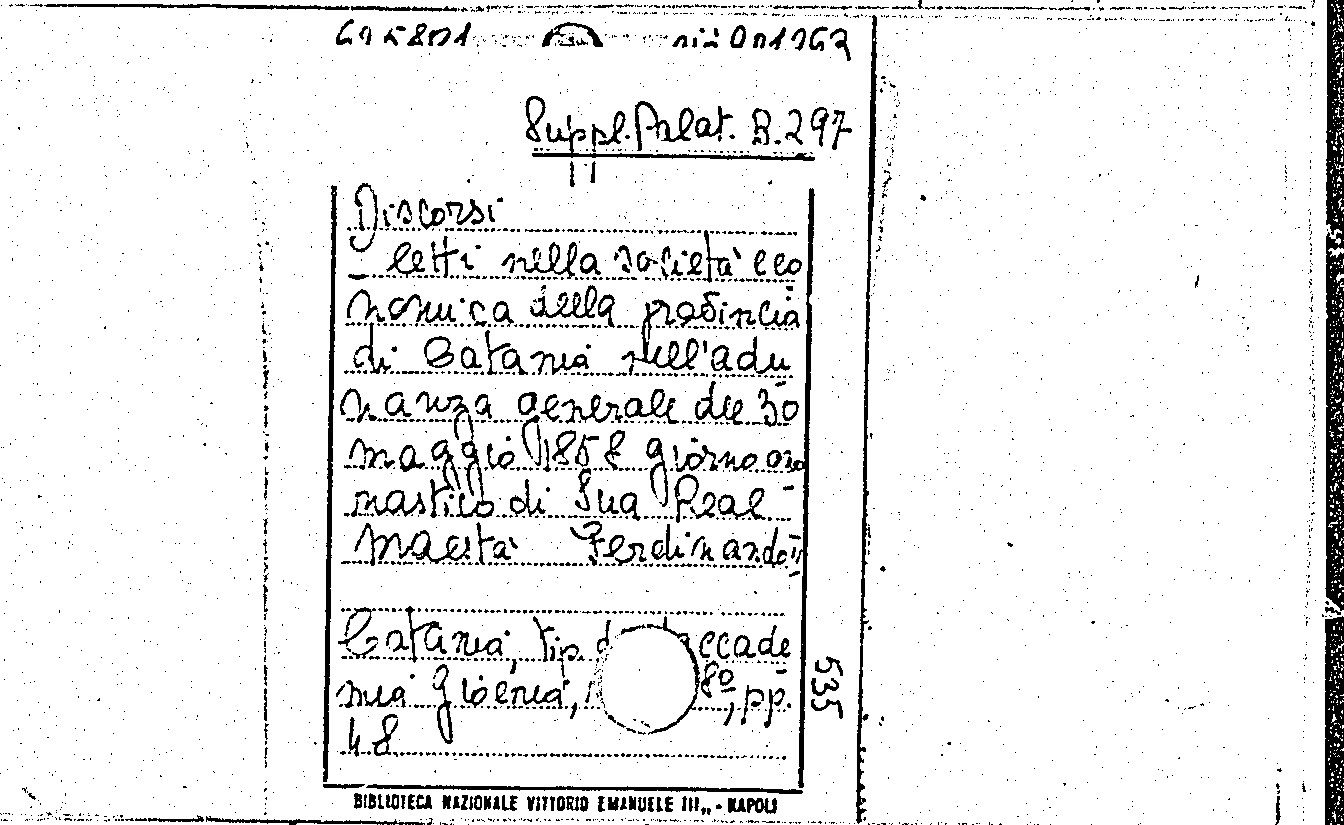 Suppl. Palat. B. 297
Discorsi
letti nella società eco
nomica della provincia
di Catania nell'adu
nanza generale del 30
maggio 1858 giorno ono
mastico di Sua Real
Maestà Ferdinando II
Catania, tip. accade
mia gioenia, 8º, pp.
48
535
BIBLIOTECA NAZIONALE VITTORIO EMANUELE III,, - NAPOLI